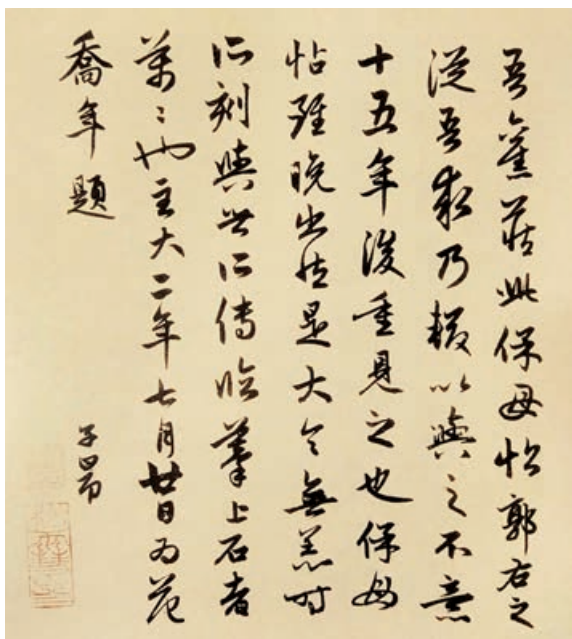 吾舊藏此保母帖郭右之
從吾求乃輟以與之不意
十五年後重見之也保母
帖雖晚出然是大令無恙時
所刻與世所傳臨摹上石者
萬〻也至大二年七月廿日為范
喬年題
子昂